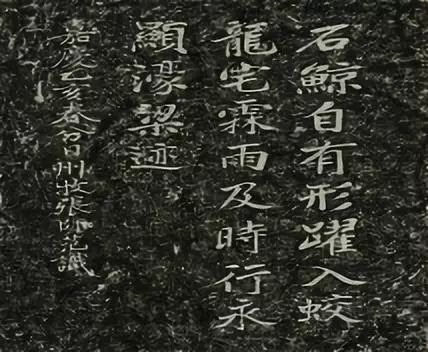 石鯨自有形躍入蛟
龍宅霖雨及時行永
顯濠梁迹
嘉慶乙亥春習州牧張師范識